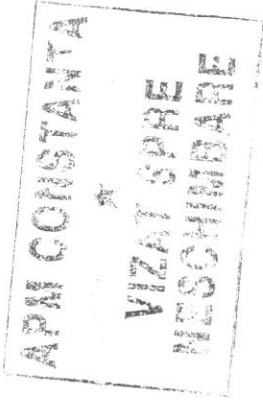 APM CONSTANTA
*
VIZAT SPRE
NESCHIMBARE